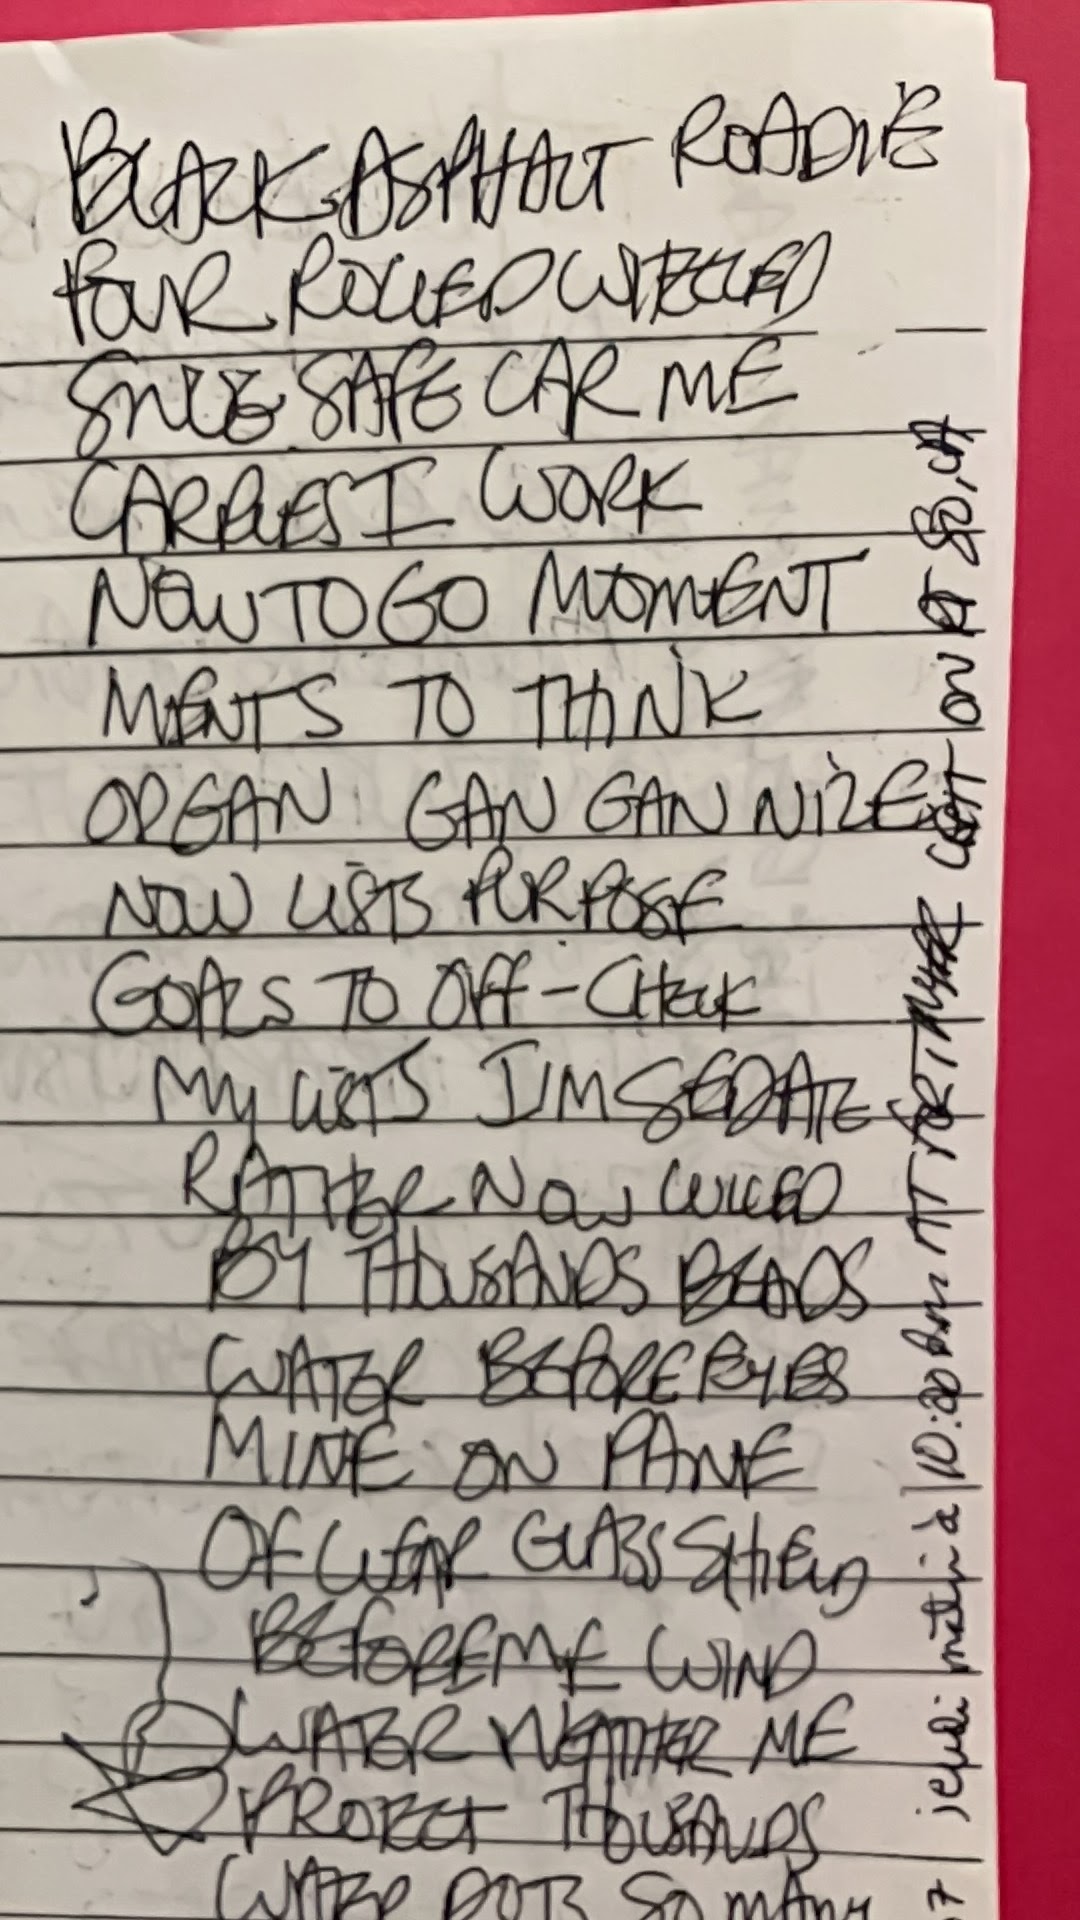 BLACK ASPHALT ROADIE
FOUR ROLLED WHEELED
SAFE CAR ME
CARRIES I WORK
NOW TO GO MOMENT
MENTS TO THINK
ORGAN GAN GAN NIZE
NOW LISTS PURPOSE
GOALS TO OFF-CHECK
MY LISTS I'M SEDATE
RATHER NOW LULLED
BY THOUSANDS BEADS
WATER BEFORE EYES
MINE ON PANE
OF CLEAR GLASS SHIELD
BEFORE ME WIND
WATER WEATHER ME
PROTECT THOUSANDS
WATER DOTS SO MANY
7 jeudi matin à 10:20 Am AT ON PT